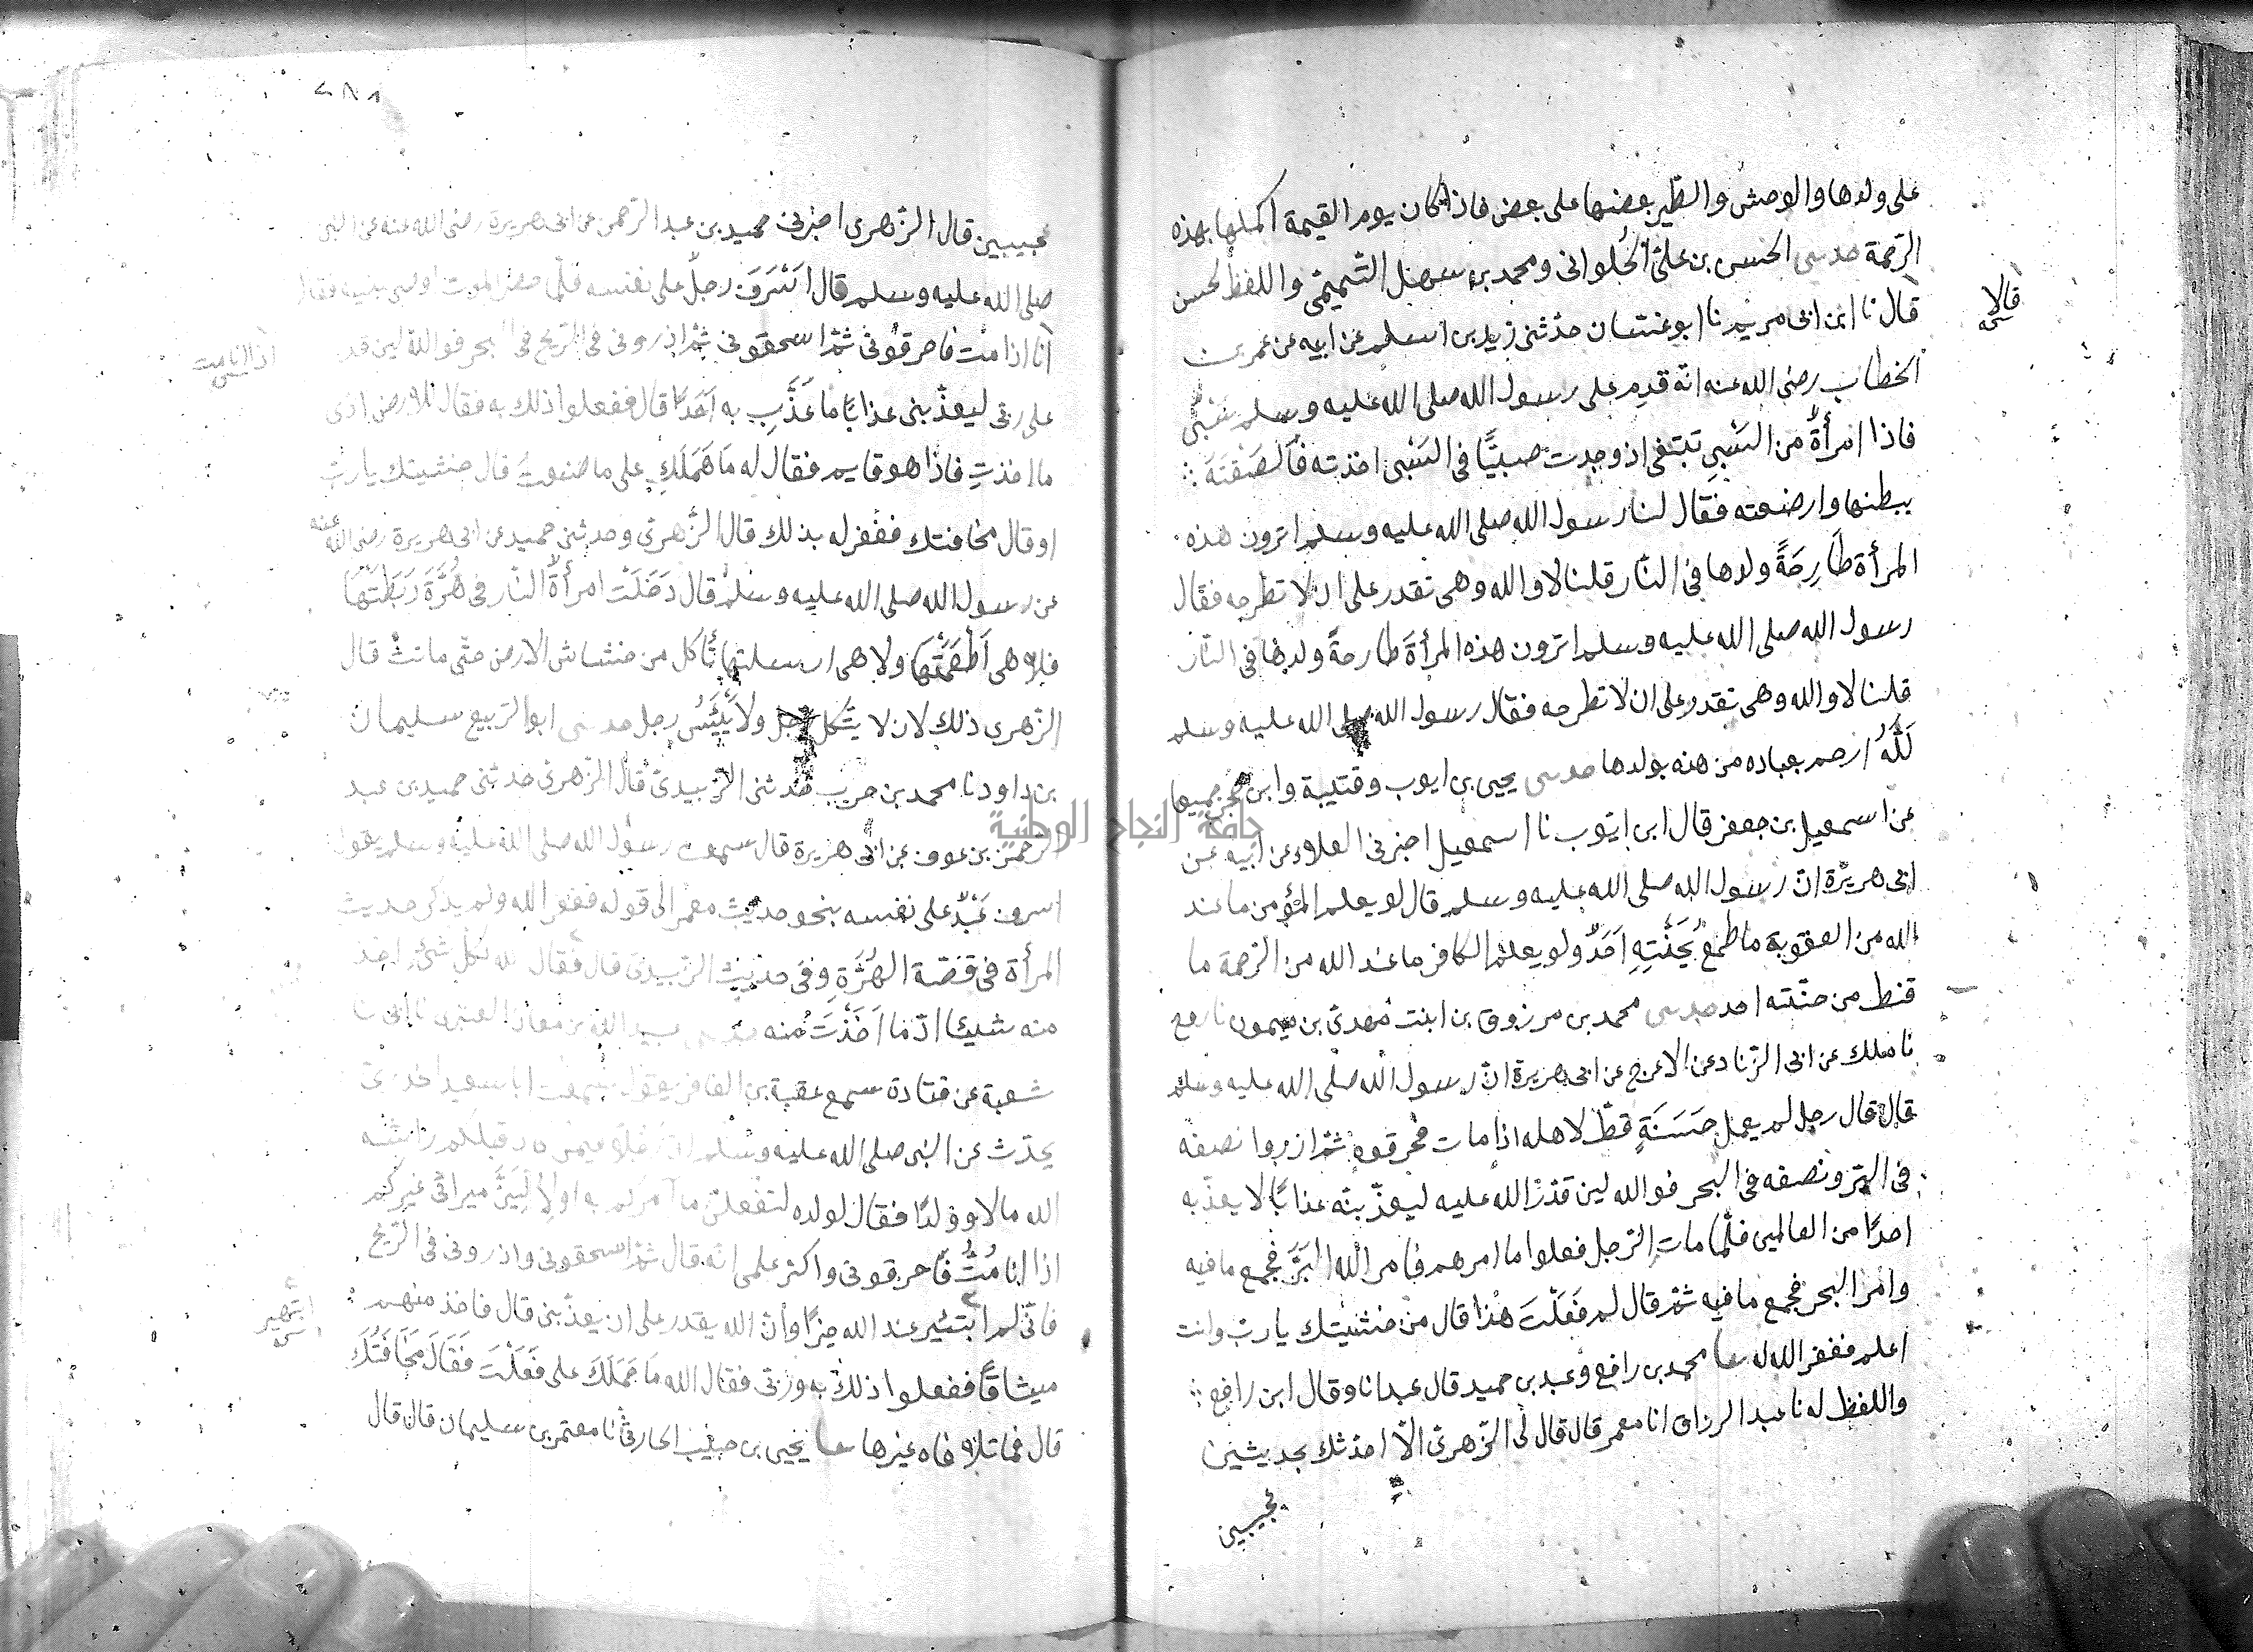 على ولدها والوحش والطير بعضها على بعض فاذا كان يوم القيمة اكملها بهذه
الرحمة حدسى الحسن بن على الحُلوانى ومحمد بن سهل التميمى واللفظ لحسن
قالا
قال نا ابن ابى مريم نا ابو غسان حدثنى زيد بن اسلم عن ابيه عن عمر بن
الخطاب رضى الله عنه انه قدم على رسول الله صلى الله عليه وسلم بسَبْىٍ
فاذا امرأةٌ من السَبْىِ تبتغى اذ وجدت صبيًّا فى السَبْى اخذته فالصقته
ببطنها وارضعته فقال لنا رسول الله صلى الله عليه وسلم اترون هذه
المرأة طَارِحَةً ولدها فى النار قلنا لا والله وهى تقدر على ان لا تطرحه فقال
رسول الله صلى الله عليه وسلم اترون هذه المرأة طارحةً ولدها فى النار
قلنا لا والله وهى تقدر على ان لا تطرحه فقال رسول الله صلى الله عليه وسلم
لَلّٰهُ ارحم بعباده من هذه بولدها حدسى يحيى بن ايوب وقتيبة وابن حجر جميعا
عن اسمعيل بن جعفر قال ابن ايوب نا اسمعيل اخبرنى العلاء عن ابيه عن
ابى هريرة ان رسول الله صلى الله عليه وسلم قال لو يعلم المؤمن ما عند
الله من العقوبة ما طمع بِجَنَّتِهِ اَحَدٌ ولو يعلم الكافر ما عند الله من الرحمة ما
قنط من جنّته احد حدسى محمد بن مرزوق بن ابنت مهدىّ بن ميمون نا روح
نا ملك عن ابى الزناد عن الاعرج عن ابى هريرة انّ رسول الله صلى الله عليه وسلم
قال قال رجل لم يعمل حَسَنَةٍ قطّ لاهله اذا مات فحرقوه ثم اذروا نصفه
فى البَرّ ونصفه فى البحر فوالله لين قدَر الله عليه ليعذّبنّه عذابًا لا يعذّبه
احدًا من العالمين فلمّا مات الرجل فعلوا ما امرهم فامر الله البَرَّ فجمع ما فيه
وامر البحر فجمع ما فيه ثم قال لم فَعَلْتَ هذا قال من خشيتك يا ربّ وانت
اعلم فغفر الله له محمد بن رافع وعبد بن حميد قال عبد انا وقال ابن رافع
واللفظ له نا عبد الرزاق انا معمر قال قال لى الزهرىّ الا احدثك بحديثين
عجيبين
٢٨١
عجيبين قال الزهرى اخبرنى حميد بن عبد الرحمن عن ابى هريرة رضى الله عنه عن النبى
صلى الله عليه وسلم قال اَسْرَفَ رجلٌ على نفسه فلمّا حضره الموت اوصى بنيه فقال
انا اذا متّ فاحرقُونى ثم اسحقونى ثم اذرونى فى الريح فى البحر فوالله لين قدر
على ربّى ليعذّبنى عذابًا ما عَذَّبَ به اَحَدًا قال ففعلوا ذلك به فقال للارض ادّى
ما اخذتِ فاذا هو قايم فقال له مَا حَمَلَكَ على ما صنعتَ قال خشيتك يا ربّ
او قال مخافتك فغفر له بذلك قال الزهرىّ وحدثنى حميد عن ابى هريرة رضى الله عنه
عن رسول الله صلى الله عليه وسلم قال دَخَلَتْ امرأةٌ النّار فى هِرَّةٍ رَبَطَتْهَا
فلا هى اَطْعَمَتْهَا ولا هى ارسلتها تأكل من خشاش الارض حتّى ماتتْ قال
الزهرى ذلك لان لا يتّكل رجل ولا يَيْئَسُ رجل حدسى ابو الربيع سليمان
بن داود نا محمد بن حرب حدثنى الزّبيدىّ قال الزهرىّ حدثنى حميد بن عبد
الرحمن بن عوف عن ابى هريرة قال سمعت رسول الله صلى الله عليه وسلم يقول
اسرف عَبْدٌ على نفسه بنحو حديث معمر الى قوله فغفر الله له ولم يذكر حديث
المرأة فى قصّة الهِرَّةِ وفى حديث الزبيدىّ قال فقال الله لكل شئ اخذ
منه شيئا ادّ ما اَخَذْتَ منه عبيد الله بن معاذ العنبرى نا ابى نا
شعبة عن قتادة سمع عقبة بن الغافر يقول سمعت ابا سعيد الخدرىّ
يحدّث عن النبى صلى الله عليه وسلم ان رجلا فيمن كان قبلكم راشه
الله مالا وولدًا فقال لولده لتفعلنّ ما آمركم به او لاُوَلِّيَنَّ ميراثى غيركم
اذا انا مُتُّ فاحرقونى واكثر علمى انه قال ثم اسحقونى واذرونى فى الريح
فانّى لم ابتئير عند الله خيرًا وانّ الله يقدر على ان يعذّبنى قال فاخذ منهم
ميثاقًا ففعلوا ذلك به وربّى فقال الله مَا حَمَلَكَ على فَعَلْتَ فَقَالَ مَخَافَتُكَ
قال فما تلافاه غيرها يحيى بن حبيب الحارثى نا معتمر بن سليمان قال قال
جامعة النجاح الوطنية